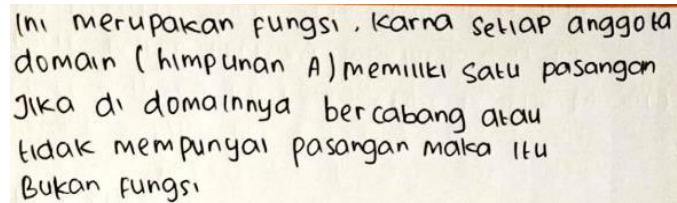 Ini merupakan fungsi, karna setiap anggota
domain (himpunan A) memiliki satu pasangan
Jika di domainnya bercabang atau
tidak mempunyai pasangan maka itu
Bukan fungsi